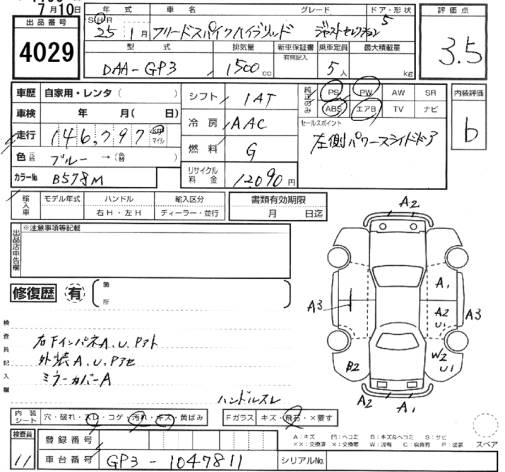 7月10日
出品番号
4029
年式 車名 グレード ドア・形状
25年1月 フリードスパイクハイブリッド ジャストセレクション 5
型式 排気量 新車保証書 乗車定員 最大積載量
有無記入
DAA-GP3 1500cc 5人 kg
評価点
3.5
車歴 自家用・レンタ( )
車検 年 月( 日)
走行 146,797
色 ブルー→(替 )
カラーNo B578M
シフト 1AT
冷房 AAC
燃料 G
リサイクル料金 12090円
純正のみ
PS PW AW SR
ABS エアB TV ナビ
セールスポイント
左側パワースライドドア
内装評価
b
輸入車 モデル年式 ハンドル 輸入区分
右H・左H ディーラー・並行
書類有効期限
月 日迄
出品店申告欄
※注意事項等記載
修復歴 有 箇所
検査員記入欄
外装A.U.Pアセ
ミラーカバーA
ハンドルスレ
A2
A1
A3
A3
A2
U1
B2
W2
U1
A2
内装シート 穴・破れ・スレ・コゲ・汚れ・キズ・黄ばみ
Fガラス キズ・飛石・×要す
スペア
A:キズ U:凹ヘコミ B:キズ&ヘコミ S:サビ
検査員
11
登録番号
車台番号 GP3-1047811
シリアルNo.